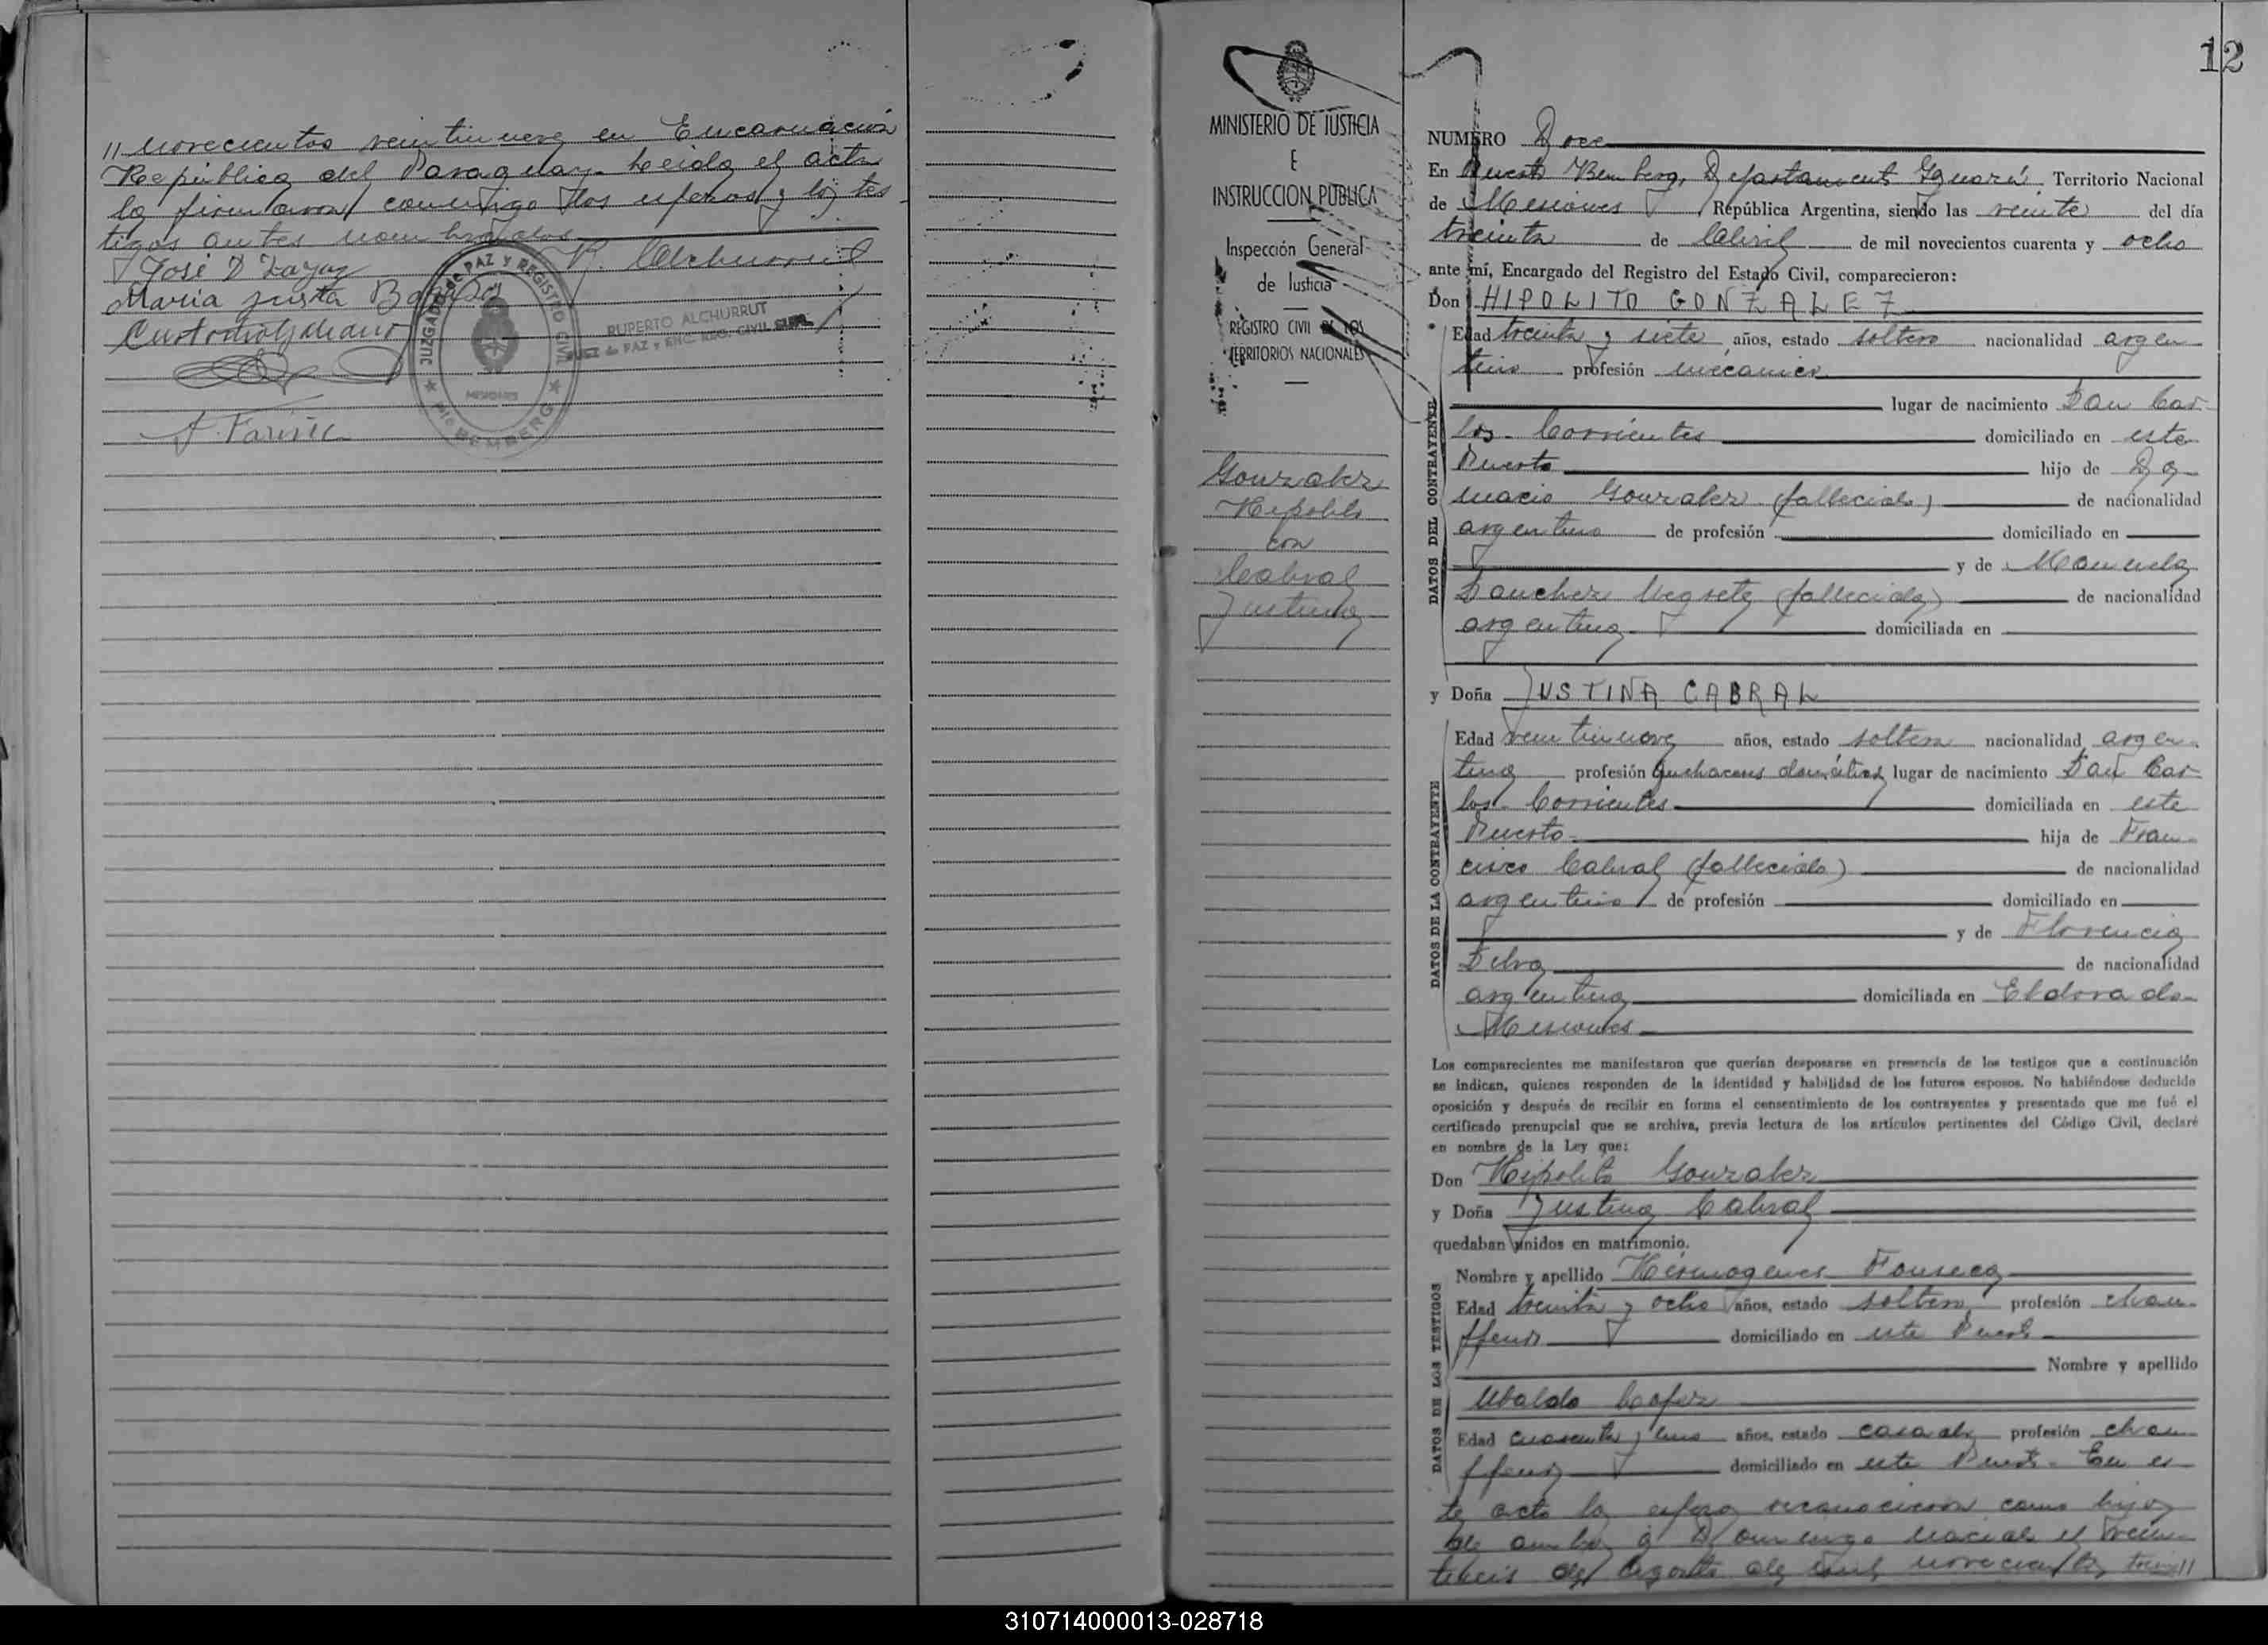 // novecientos veintinueve en Encarnación
República del Paraguay. Leida el acta
la firmaron conmigo los esposos y los tes
tigos antes nombrados
José D Zayaz
R. Alchurrut
Maria Justa
JUZGADO DE PAZ Y REGISTRO CIVIL
MISIONES
Pto BEMBERG
RUPERTO ALCHURRUT
JUEZ de PAZ y ENC. REG. CIVIL
12
MINISTERIO DE JUSTICIA
E
INSTRUCCION PUBLICA
Inspección General
de Justicia
REGISTRO CIVIL DE LOS
TERRITORIOS NACIONALES
Gonzalez
Hipolito
con
Cabral
Justina
NUMERO Doce
En Puerto Bemberg, Departamento Iguazú, Territorio Nacional
de Misiones, República Argentina, siendo las veinte del día
treinta de Abril de mil novecientos cuarenta y ocho
ante mí, Encargado del Registro del Estado Civil, comparecieron:
Don HIPOLITO GONZALEZ
DATOS DEL CONTRAYENTE
Edad treinta y siete años, estado soltero nacionalidad argen
tino profesión mecanico
lugar de nacimiento San Car
los. Corrientes domiciliado en este
Puerto hijo de Ig
nacio Gonzalez (fallecido) de nacionalidad
argentino de profesión domiciliado en
y de Manuela
Sanchez Negrete (fallecida) de nacionalidad
argentina domiciliada en
y Doña JUSTINA CABRAL
DATOS DE LA CONTRAYENTE
Edad veintinueve años, estado soltera nacionalidad argen
tina profesión quehaceres domésticos lugar de nacimiento San Car
los. Corrientes domiciliada en este
Puerto. hija de Fran
cisco Cabral (fallecido) de nacionalidad
argentino de profesión domiciliado en
y de Florencia
Silva de nacionalidad
argentina domiciliada en Eldorado
Misiones
Los comparecientes me manifestaron que querían desposarse en presencia de los testigos que a continuación
se indican, quienes responden de la identidad y habilidad de los futuros esposos. No habiéndose deducido
oposición y después de recibir en forma el consentimiento de los contrayentes y presentado que me fué el
certificado prenupcial que se archiva, previa lectura de los artículos pertinentes del Código Civil, declaré
en nombre de la Ley que:
Don Hipolito Gonzalez
y Doña Justina Cabral
quedaban unidos en matrimonio.
DATOS DE LOS TESTIGOS
Nombre y apellido Hermogenes Fonseca
Edad treinta y ocho años, estado soltero profesión chau
ffeur domiciliado en este Puerto
Nombre y apellido
Ubaldo Lopez
Edad cuarenta y uno años, estado casado profesión chau
ffeur domiciliado en este Puerto. En es
te acto los esposos reconocieron como hijo
de ambos a Domingo nacido el
de Agosto de mil novecientos
310714000013-028718